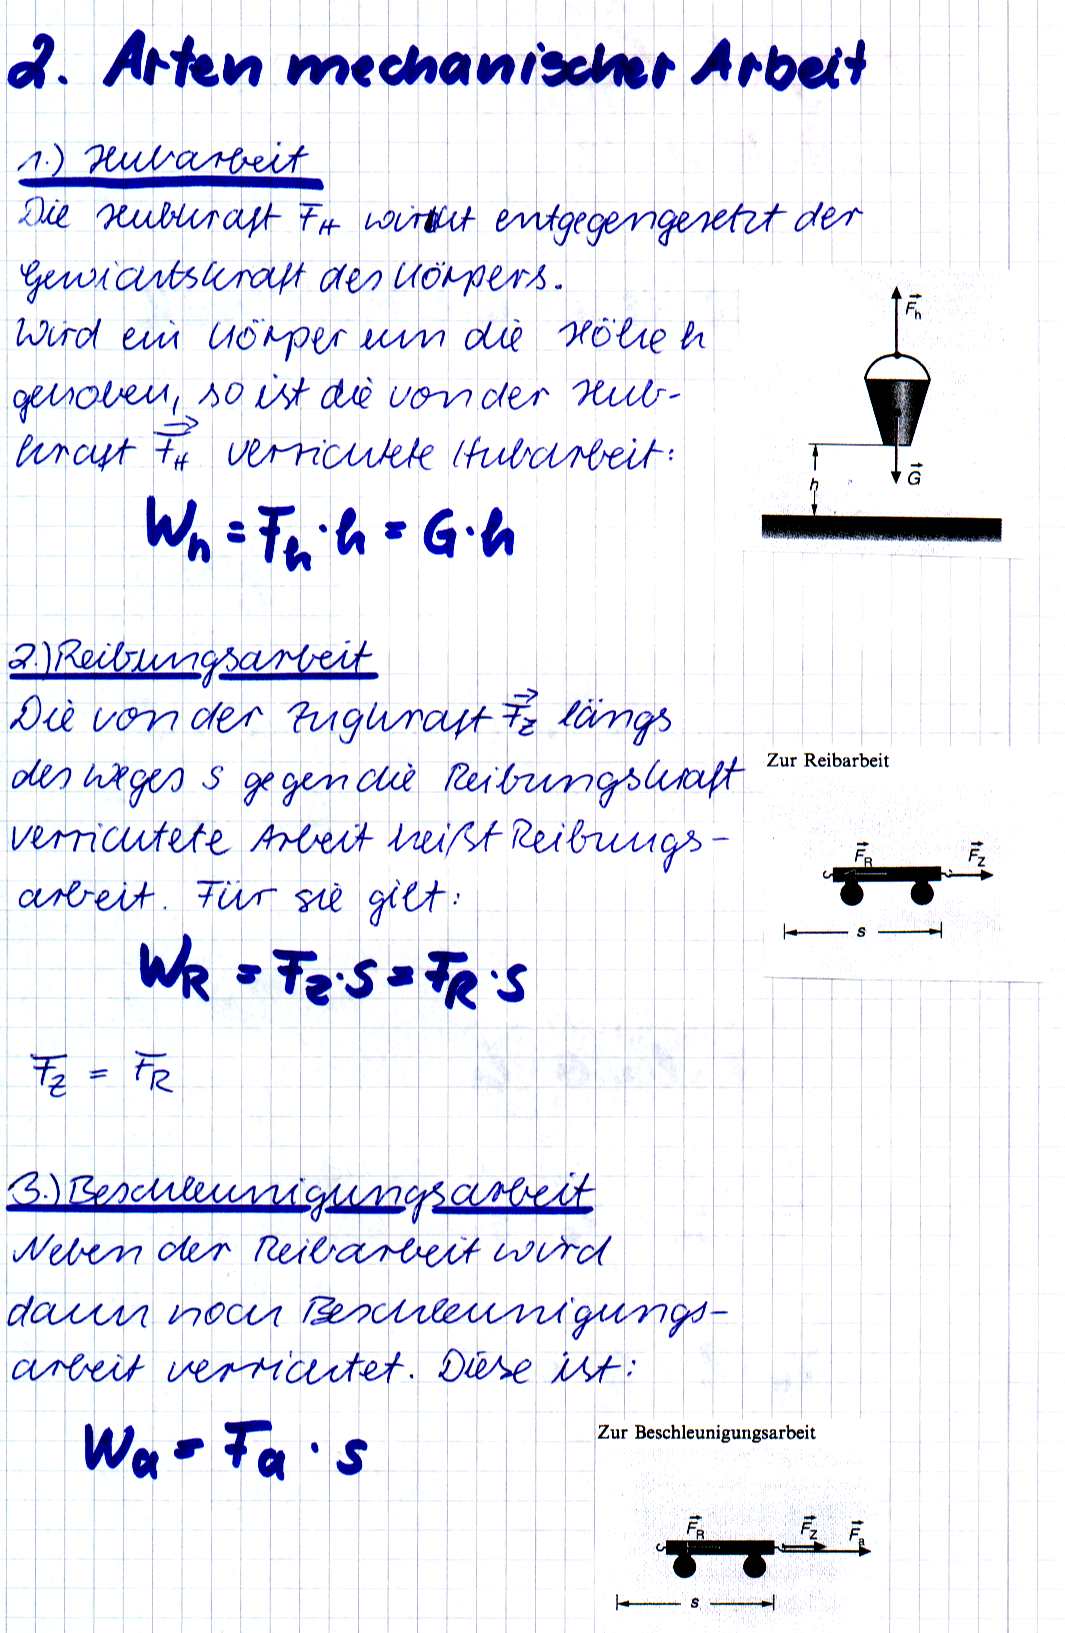 2. Arten mechanischer Arbeit
1.) Hubarbeit
Die Hubkraft F_H wirkt entgegengesetzt der
Gewichtskraft des Körpers.
Wird ein Körper um die Höhe h
gehoben, so ist die von der Hub-
kraft F_H verrichtete Hubarbeit:
W_h = F_h · h = G · h
F_h
G
h
2.) Reibungsarbeit
Die von der Zugkraft F_Z längs
des Weges s gegen die Reibungskraft
verrichtete Arbeit heißt Reibungs-
arbeit. Für sie gilt:
W_R = F_Z · s = F_R · s
F_Z = F_R
Zur Reibarbeit
F_R
F_Z
s
3.) Beschleunigungsarbeit
Neben der Reibarbeit wird
dann noch Beschleunigungs-
arbeit verrichtet. Diese ist:
W_a = F_a · s
Zur Beschleunigungsarbeit
F_R
F_Z
F_a
s